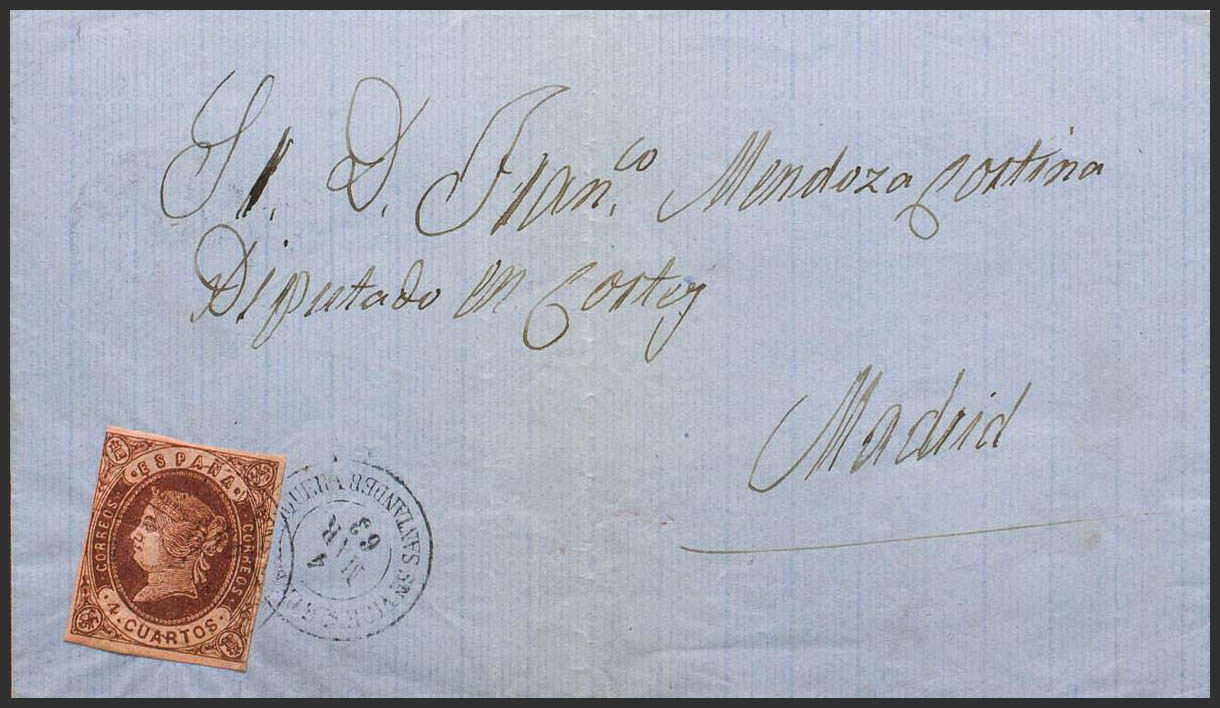 Sr. D. Fran.co Mendoza Cortina
Diputado en Cortes
Madrid
ESPAÑA
CORREOS
CORREOS
4 CUARTOS
SANTANDER
4
MAR
63